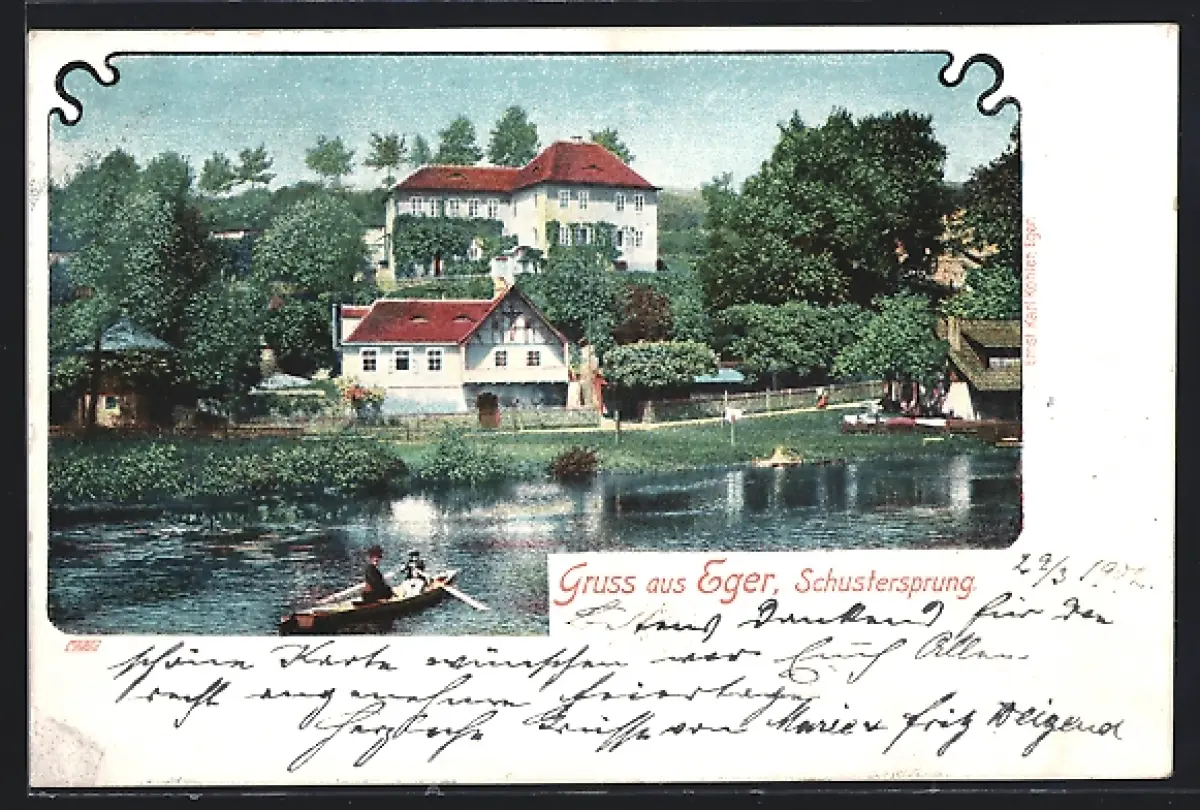 Gruss aus Eger, Schustersprung.
29/3 1902.
Bestens dankend für die
schöne Karte wünschen wir Euch Allen
recht angenehme Feiertage
Herzliche Grüsse von Marie u Fritz Weigend
Ernst Karl Köhler, Eger.